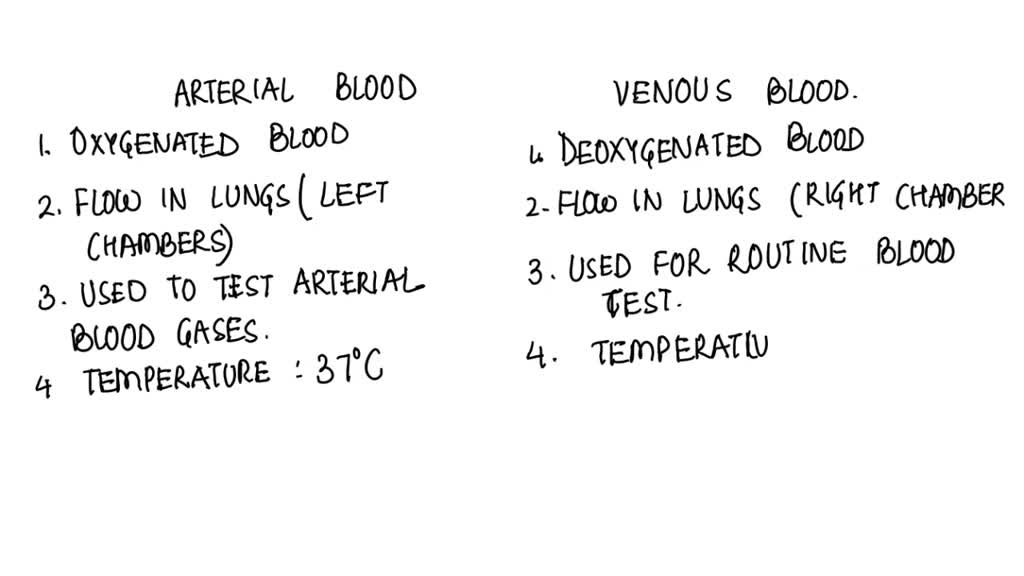 ARTERIAL BLOOD
1. OXYGENATED BLOOD
2. FLOW IN LUNGS (LEFT
CHAMBERS)
3. USED TO TEST ARTERIAL
BLOOD GASES.
4 TEMPERATURE : 37°C
VENOUS BLOOD.
1. DEOXYGENATED BLOOD
2- FLOW IN LUNGS (RIGHT CHAMBER
3. USED FOR ROUTINE BLOOD
TEST.
4. TEMPERATU